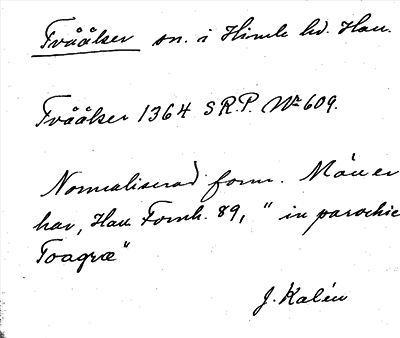 Tvååker sn. i Himle hd. Hall.
Tvååker 1364 S.R.P. No 609.
Normaliserad form. Må̈ller
har, Hall. Fornh. 89, " in parochie
Toagræ"
J. Kalén